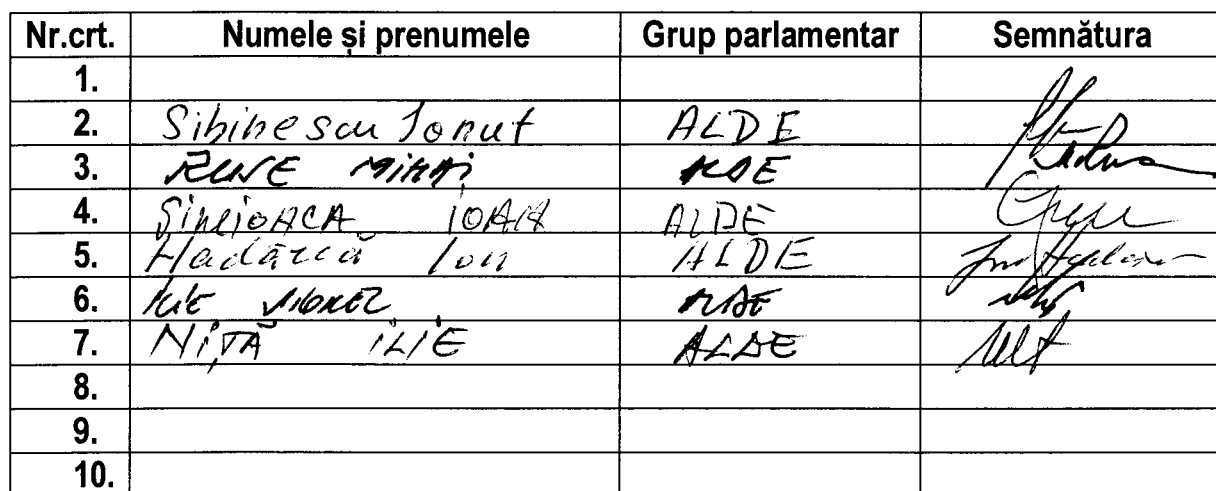 Nr.crt. Numele și prenumele Grup parlamentar Semnătura
1.
2. Sibinescu Ionut ALDE
3. RUSE MIHAI ALDE
4. SIMIOACA IOAN ALDE
5. Hadârcă Ion ALDE
6. ILIE VIOREL ALDE
7. NIȚĂ ILIE ALDE
8.
9.
10.